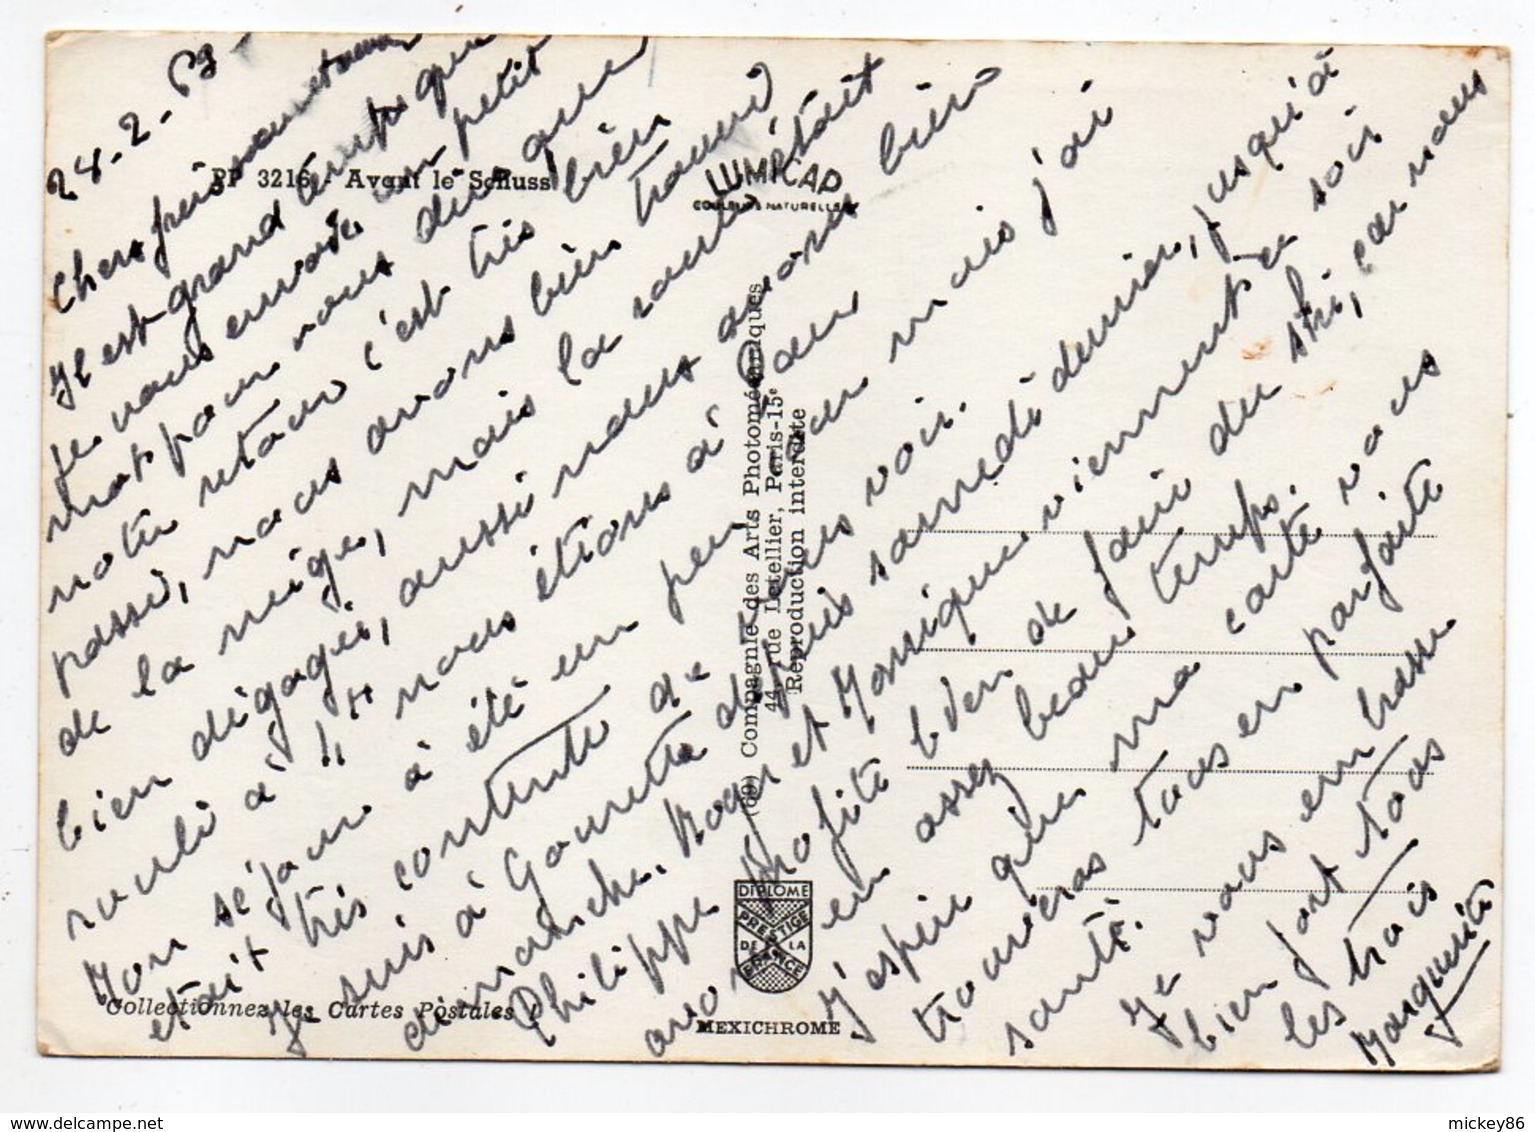 24-2-69-
Chers frères
Il est grand temps que
je vous envoie un petit
mot pour vous dire que
notre retour c'est très bien
passé, nous avons bien trouvé
de la neige, mais la route était
bien dégagée, aussi nous avons bien
roulé à nous étions à Paris
Mon séjour a été un peu mais j'ai
était très contente de vous voir.
Je suis à depuis samedi dernier, jusqu'à
dimanche. Roger et Monique viennent ce soir
Philippe profite bien de faire du ski, car nous
avons eu assez beau temps.
J'espère que ma carte vous
trouveras tous en parfaite
santé.
Je vous embrasse
bien fort tous
les trois
Marguerite
PP 3216 - Avant le Schuss
LUMICAP
COULEURS NATURELLES
(69) Compagnie des Arts Photomécaniques
44, rue Letellier, Paris-15e
Reproduction interdite
DIPLOME
PRESTIGE
DE LA
FRANCE
Collectionnez les Cartes Postales !
MEXICHROME
mickey86